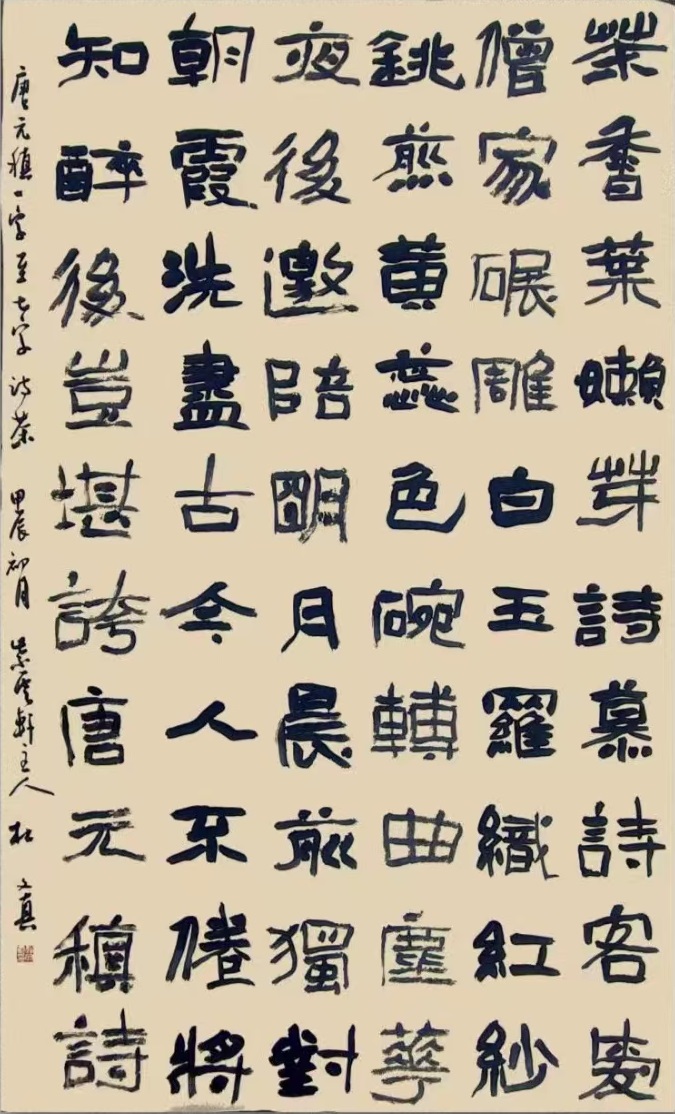 茶香葉嫩芽詩慕詩客愛
僧家碾雕白玉羅織紅紗
銚煎黄蕊色碗轉曲塵華
夜後邀陪明月晨前獨對
朝霞洗盡古今人不倦將
知醉後豈堪誇唐元稹詩
唐元稹一字至七字诗茶 甲辰初月 紫雲軒主人 杜文真